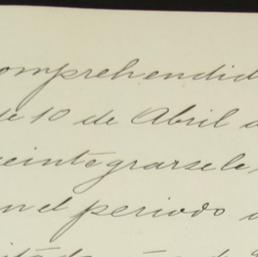 comprehendid
de 10 de Abril d
reintegrarsele
en el periodo d